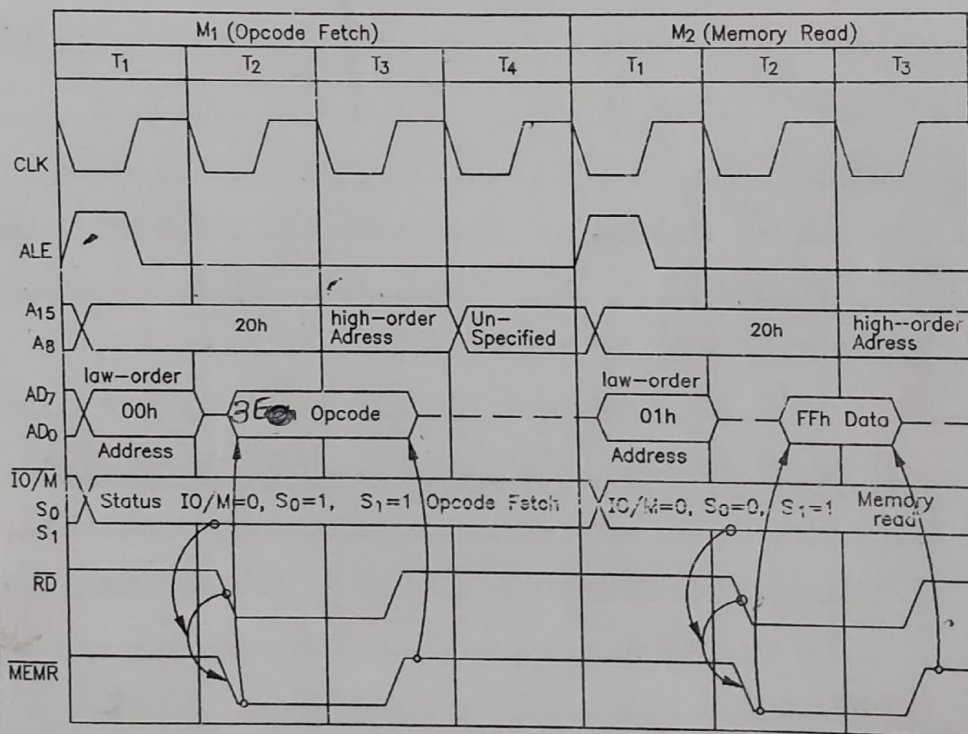 M1 (Opcode Fetch) M2 (Memory Read)
T1 T2 T3 T4 T1 T2 T3
CLK
ALE
A15
A8
20h
high-order
Adress
Un-
Specified
20h
high--order
Adress
law-order
AD7
AD0
00h
Address
3E Opcode
law-order
01h
Address
FFh Data
IO/M
S0
S1
Status IO/M=0, S0=1, S1=1 Opcode Fetch
IO/M=0, S0=0, S1=1 Memory
read
RD
MEMR